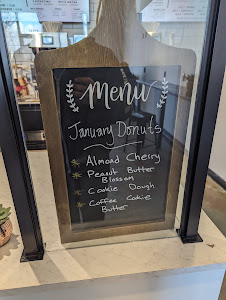 Menu
January Donuts
Almond Cherry
Peanut Butter
Blossom
Cookie Dough
Coffee Cake
Butter